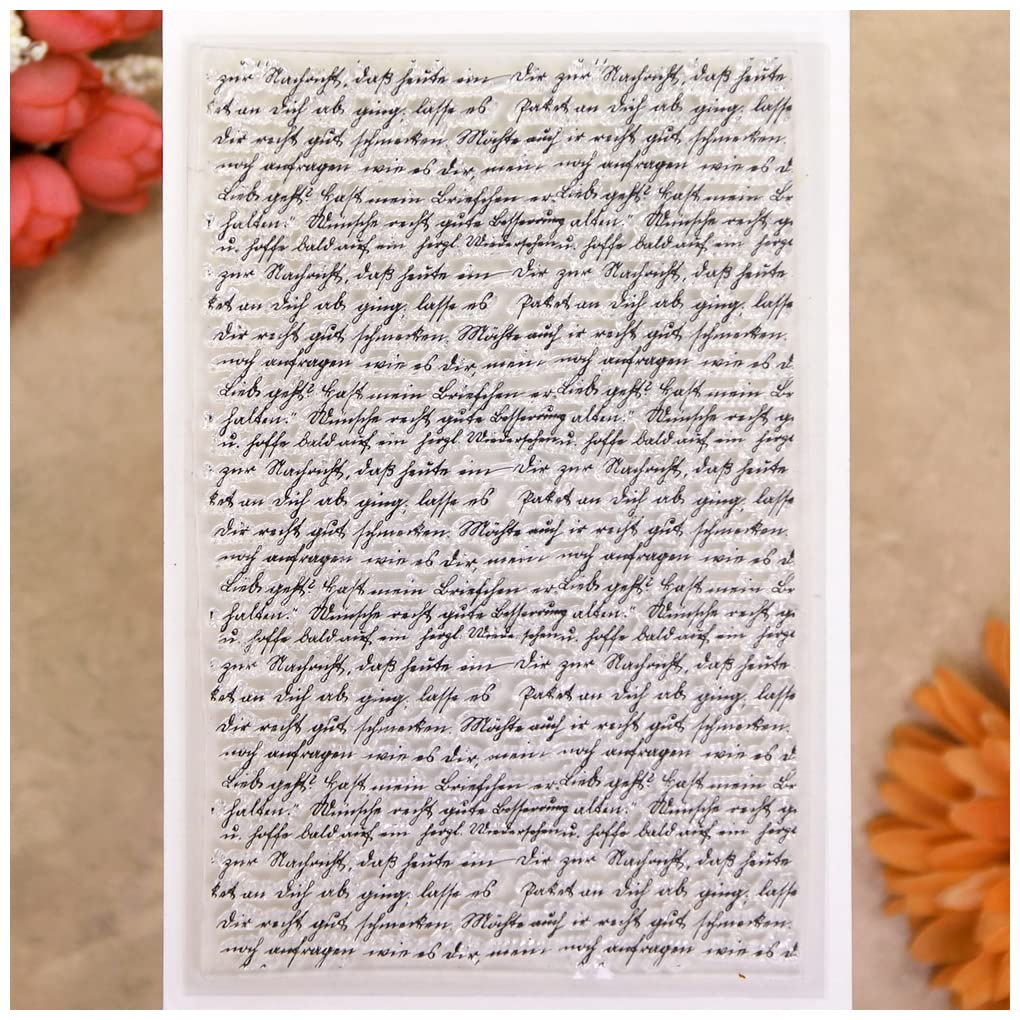 zur Nachricht, daß heute ein Dir zur Nachricht, daß heute
ket an Dich ab ging, lasse es Paket an Dich ab ging, lasse
Dir recht gut schmecken. Möchte auch ir recht gut schmecken.
noch anfragen wie es Dir, mein noch anfragen wie es D
Lieb geht? Hast mein Briefchen er Lieb geht? Hast mein Br
halten." Wünsche recht gute Besserung alten." Wünsche recht g
u. hoffe bald auf ein herzl. Wiedersehen u. hoffe bald auf ein herz
zur Nachricht, daß heute ein Dir zur Nachricht, daß heute
ket an Dich ab ging, lasse es Paket an Dich ab ging, lasse
Dir recht gut schmecken. Möchte auch ir recht gut schmecken.
noch anfragen wie es Dir, mein noch anfragen wie es D
Lieb geht? Hast mein Briefchen er Lieb geht? Hast mein Br
halten." Wünsche recht gute Besserung alten." Wünsche recht g
u. hoffe bald auf ein herzl. Wiedersehen u. hoffe bald auf ein herz
zur Nachricht, daß heute ein Dir zur Nachricht, daß heute
ket an Dich ab ging, lasse es Paket an Dich ab ging, lasse
Dir recht gut schmecken. Möchte auch ir recht gut schmecken.
noch anfragen wie es Dir, mein noch anfragen wie es D
Lieb geht? Hast mein Briefchen er Lieb geht? Hast mein Br
halten." Wünsche recht gute Besserung alten." Wünsche recht g
u. hoffe bald auf ein herzl. Wiedersehen u. hoffe bald auf ein herz
zur Nachricht, daß heute ein Dir zur Nachricht, daß heute
ket an Dich ab ging, lasse es Paket an Dich ab ging, lasse
Dir recht gut schmecken. Möchte auch ir recht gut schmecken.
noch anfragen wie es Dir, mein noch anfragen wie es D
Lieb geht? Hast mein Briefchen er Lieb geht? Hast mein Br
halten." Wünsche recht gute Besserung alten." Wünsche recht g
u. hoffe bald auf ein herzl. Wiedersehen u. hoffe bald auf ein herz
zur Nachricht, daß heute ein Dir zur Nachricht, daß heute
ket an Dich ab ging, lasse es Paket an Dich ab ging, lasse
Dir recht gut schmecken. Möchte auch ir recht gut schmecken.
noch anfragen wie es Dir, mein noch anfragen wie es D